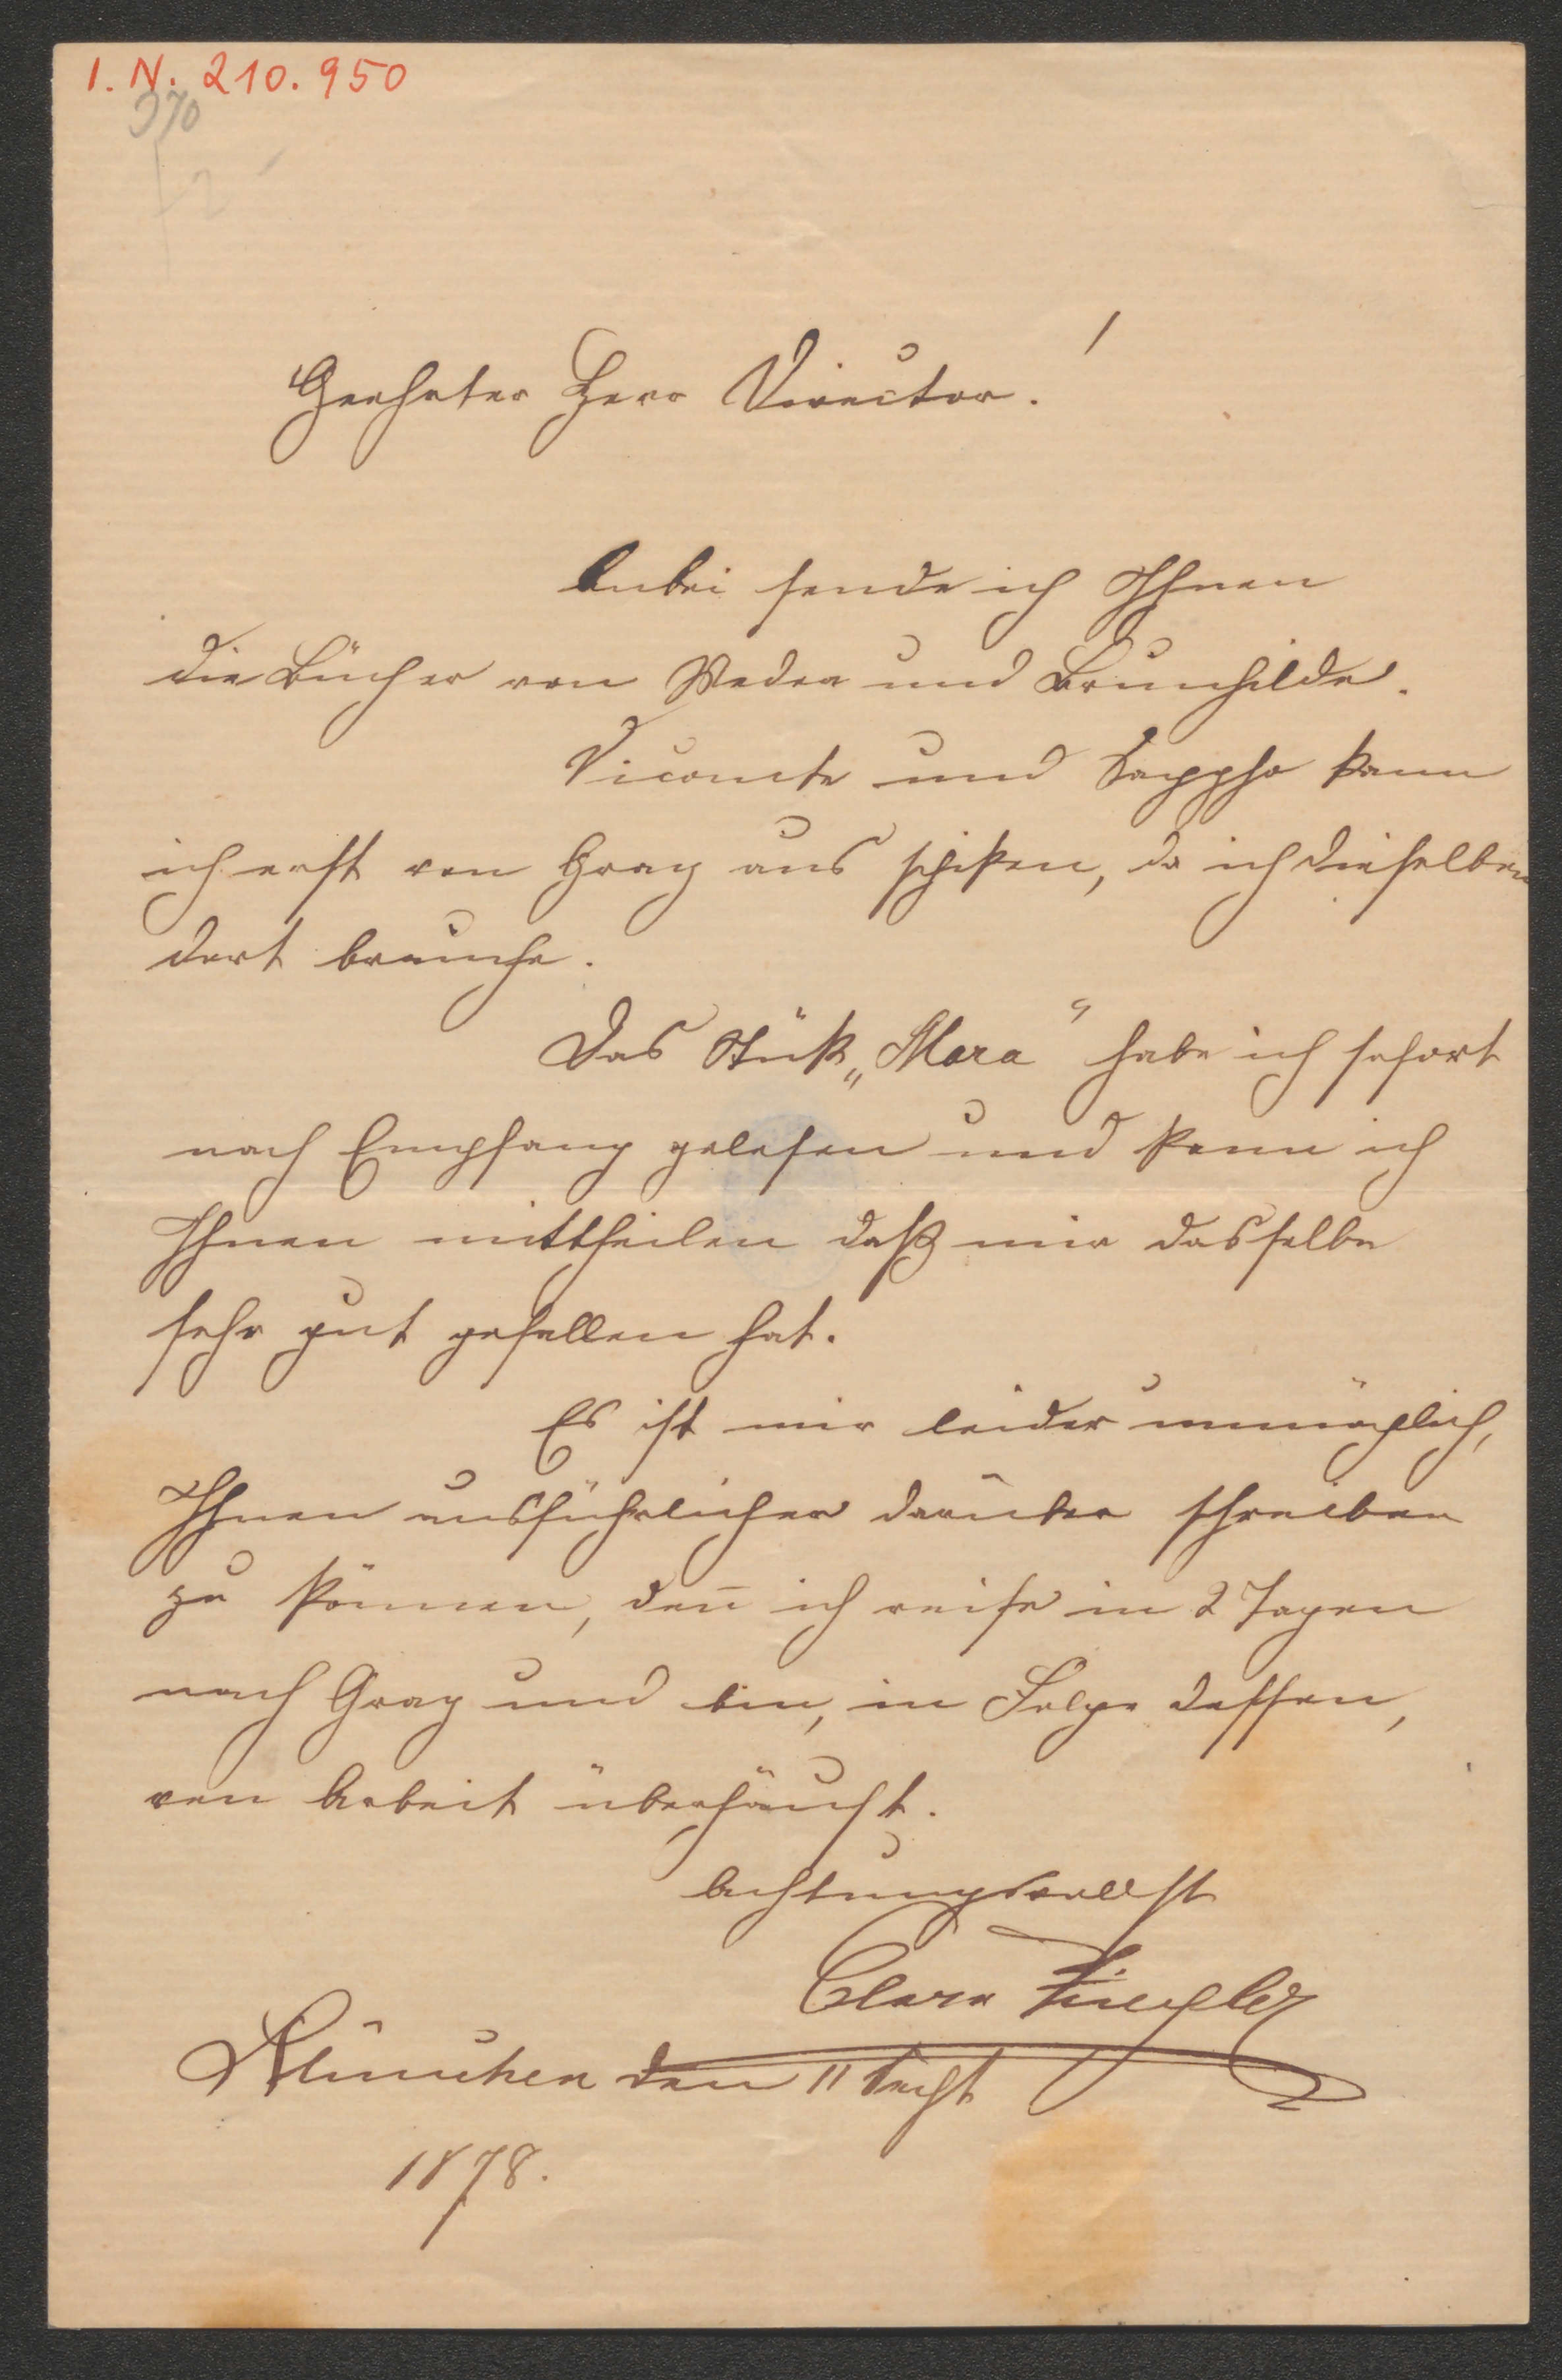 I. N. 210.950
970
Geehrter Herr Director!
Anbei sende ich Ihnen
die Bücher von Medea und Brunhilde.
Vicomte und Sappho kann
ich erst von Graz aus schiken, da ich dieselben
dort brauche.
Das Stük „Mara“ habe ich sofort
nach Empfang gelesen und kann ich
Ihnen mittheilen daß mir dasselbe
sehr gut gefallen hat.
Es ist mir leider unmöglich,
Ihnen ausführlicher darüber schreiben
zu können, den̄ ich reise in 2 Tagen
nach Graz und bin, in Folge dessen,
von Arbeit überhäuft.
Achtungsvollst
Clara Ziegler
München den 11 Sept
1878.